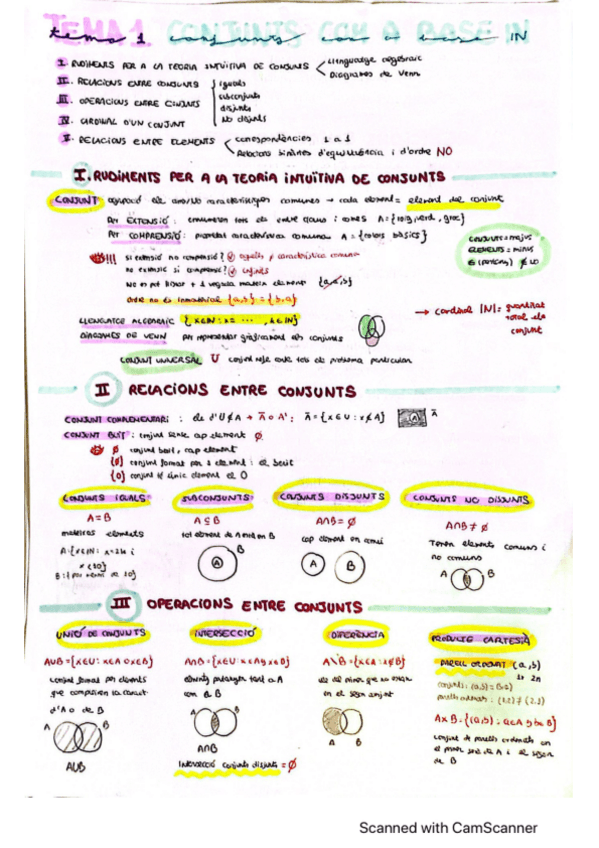 TEMA 1 CONJUNTS COM A BASE IN
tema 1 conjunts com a base IN
I. RUDIMENTS PER A LA TEORIA INTUÏTIVA DE CONJUNTS < Llenguatge algebraic
Diagrames de Venn
II. RELACIONS ENTRE CONJUNTS
iguals
subconjunts
disjunts
No disjunts
III. OPERACIONS ENTRE CONJUNTS
IV. CARDINAL D'UN CONJUNT
V. RELACIONS ENTRE ELEMENTS < correspondències 1 a 1
Relacions binàries d'equivalència i d'ordre NO
I. RUDIMENTS PER A LA TEORIA INTUÏTIVA DE CONJUNTS
CONJUNT agrupació els amb/no característiques comunes → cada element = element del conjunt
PER EXTENSIÓ: enumerem tots els entre claus i comes A={roig, verd, groc}
PER COMPRENSIÓ: propietat característica comuna A={colors bàsics}
CONJUNTS = MAJÚS
ELEMENTS = MINÚS
∈ (pertany) ∉ NO
!!! si extensió no comprensió? característica comuna
no extensió si comprensió? infinits
No es pot llistar + 1 vegada mateix element {a,a,b}
Ordre no és {a,b} = {b,a}
LLENGUATGE ALGEBRAIC {x∈IN: x= ... , k∈IN}
DIAGRAMES DE VENN per representar gràficament els conjunts
→ cardinal |N| = quantitat total els conjunt
CONJUNT UNIVERSAL U conjunt tots els problema particular
II RELACIONS ENTRE CONJUNTS
CONJUNT COMPLEMENTARI: els d'U ∉ A → Ā o A'; Ā={x∈U: x∉A} Ā
CONJUNT BUIT: conjunt sense cap element ∅
∅ conjunt buit, cap element
{∅} conjunt format per 1 element: el buit
{0} conjunt únic element el 0
CONJUNTS IGUALS
A=B
mateixos elements
A:{x∈IN: x=2k i
x<10}
SUBCONJUNTS
A⊆B
tot element de A està en B
A B
CONJUNTS DISJUNTS
A∩B=∅
cap element en comú
A B
CONJUNTS NO DISJUNTS
A∩B≠∅
Tenen elements comuns i
no comuns
A B
III OPERACIONS ENTRE CONJUNTS
UNIÓ DE CONJUNTS
AUB={x∈U: x∈A o x∈B}
conjunt format per elements
que compleixen la caract.
d'A o de B
A B
AUB
INTERSECCIÓ
A∩B={x∈U: x∈A y x∈B}
elements pertanyen tant a A
com a B
A B
A∩B
Intersecció conjunts disjunts = ∅
DIFERÈNCIA
A\B={x∈A: x∉B}
els del primer que no estan
en el segon conjunt
A B
PRODUCTE CARTESIÀ
PARELL ORDENAT (a,b)
1r 2n
parells ordenats: (1,2) ≠ (2,1)
AxB={(a,b): a∈A y b∈B}
conjunt de parells ordenats on
el primer serà de A i el segon
de B
Scanned with CamScanner